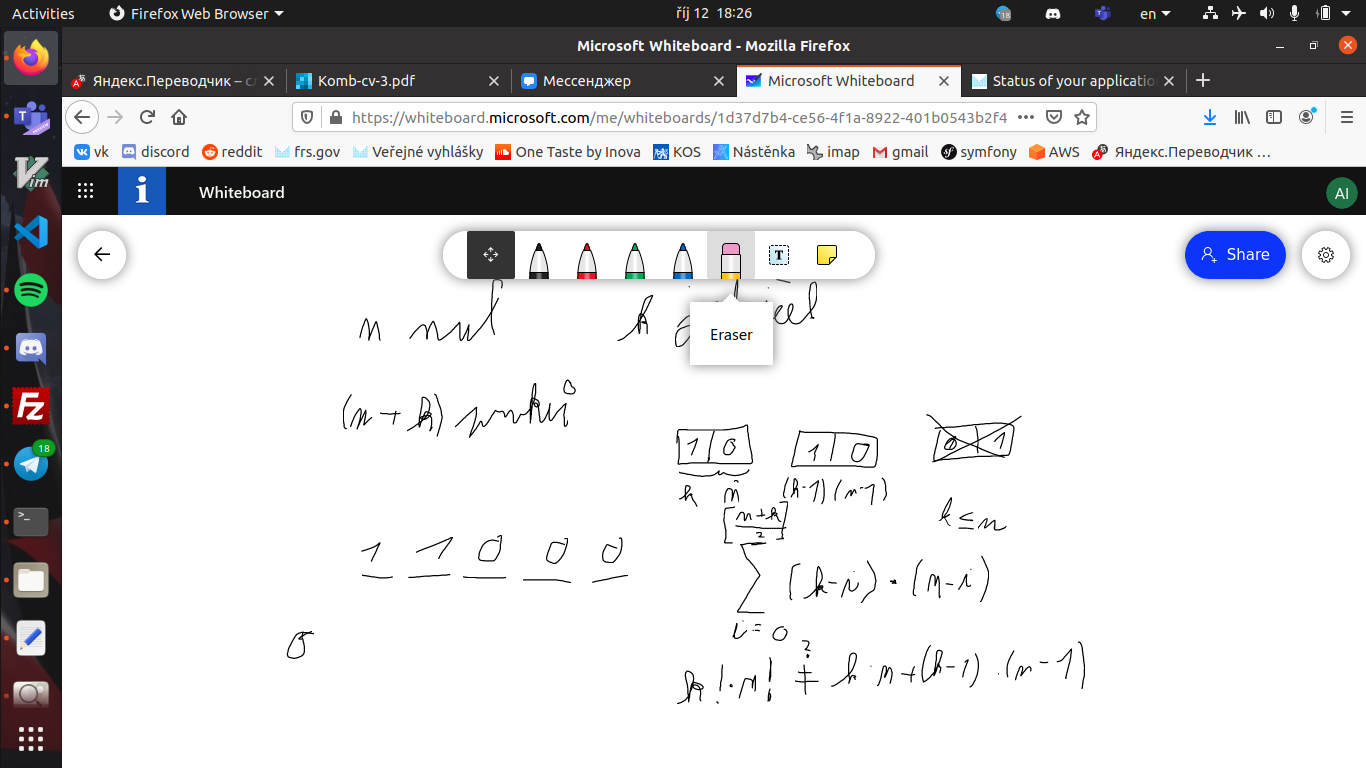 Activities Firefox Web Browser říj 12 18:26 18 en
Microsoft Whiteboard - Mozilla Firefox
Яндекс.Переводчик – сл Komb-cv-3.pdf Мессенджер Microsoft Whiteboard Status of your applicatio
https://whiteboard.microsoft.com/me/whiteboards/1d37d7b4-ce56-4f1a-8922-401b0543b2f4
vk discord reddit frs.gov Veřejné vyhlášky One Taste by Inova KOS Nástěnka imap gmail symfony AWS Яндекс.Переводчик ...
Whiteboard AI
T Share
Eraser
n nul k
(n+k) prvků
1 0 1 0 0 1
k n (k-1) (n-1)
k ≤ n
[n+k/2]
1 1 0 0 0
∑ (k-i) · (n-i)
i = 0
k! · n! ≠ k · n + (k-1) · (n-1)
?
VIM
18